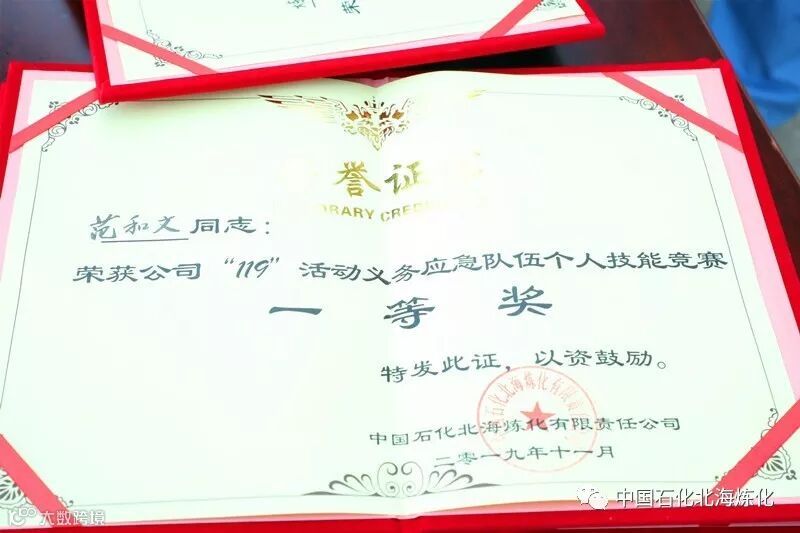 誉证
ORARY CRED
范和文同志：
荣获公司“119”活动义务应急队伍个人技能竞赛
一等奖
特发此证，以资鼓励。
中国石化北海炼化有限责任公司
二零一九年十一月
中国石化北海炼化
大数跨境